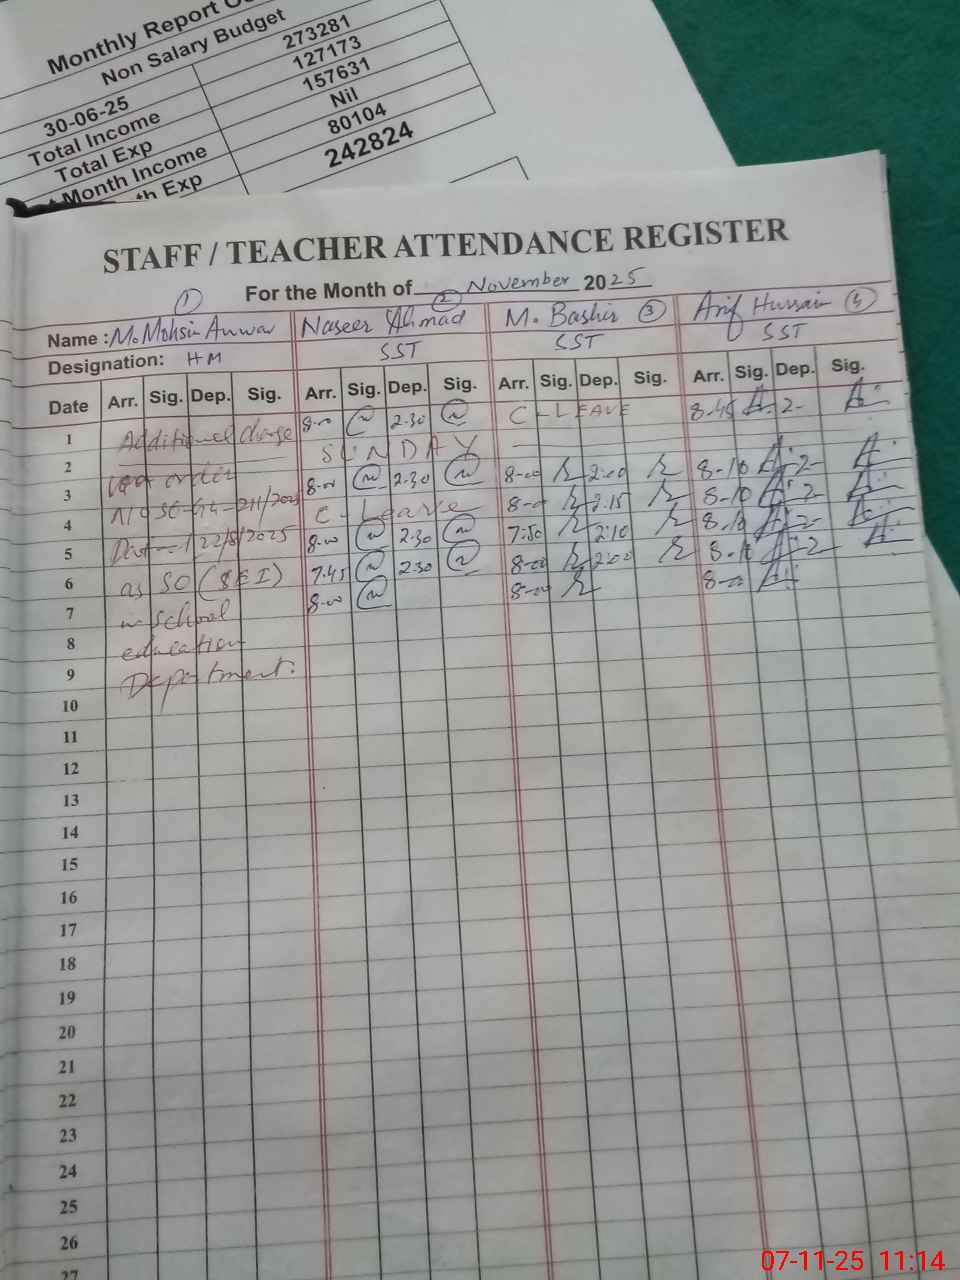 Monthly Report
Non Salary Budget
273281
30-06-25 127173
Total Income 157631
Total Exp Nil
Month Income 80104
th Exp 242824
STAFF / TEACHER ATTENDANCE REGISTER
For the Month of November 2025
① ② ③ ④
Name : M. Mohsin Anwar Naseer Ahmad M. Bashir Arif Hussain
Designation: HM SST SST SST
Date Arr. Sig. Dep. Sig. Arr. Sig. Dep. Sig. Arr. Sig. Dep. Sig. Arr. Sig. Dep. Sig.
1 Additional Charge 8-00 2.30 C-LEAVE 8-45 2-
2 order SUNDAY
3 8-00 2.30 8-00 2:00 8-10 2-
4 22/8/2025 C-Leave 8-00 2.15 8-10 2-
5 as SO (SEI) 8-00 2.30 7:50 2:10 8-10 2-
6 in school 7.45 2.30 8-00 2:00 8-10 2-
7 education 8-00 8-00 8-00
8 Department.
9
10
11
12
13
14
15
16
17
18
19
20
21
22
23
24
25
26
27
07-11-25 11:14